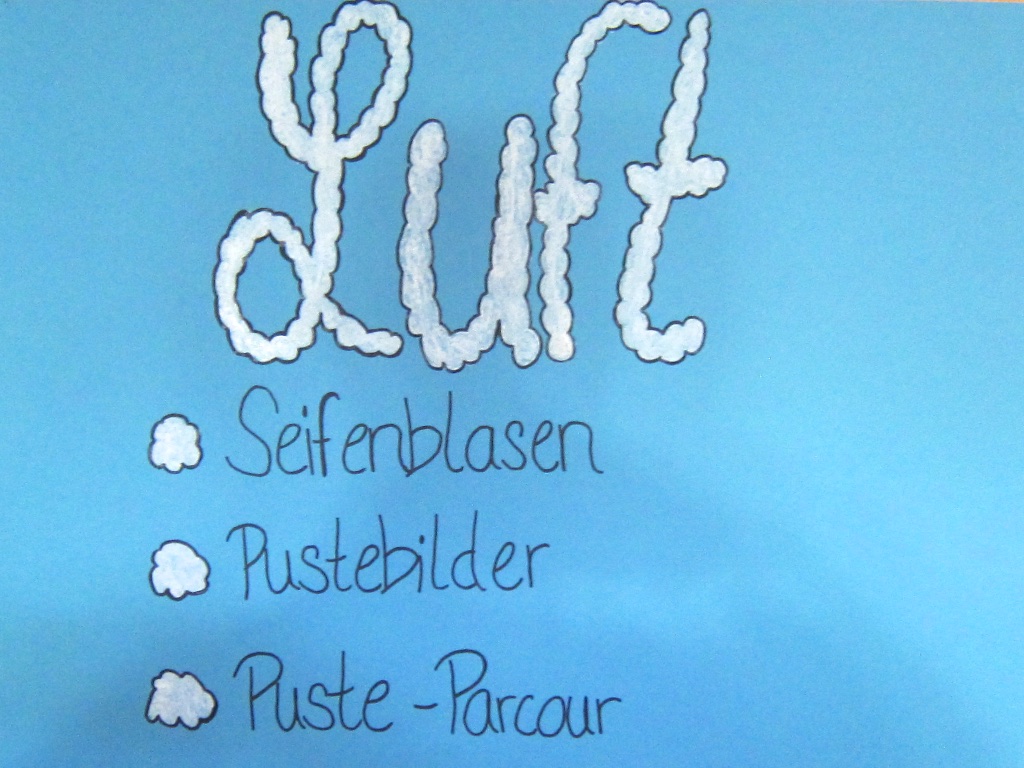 Luft
Seifenblasen
Pustebilder
Puste-Parcour